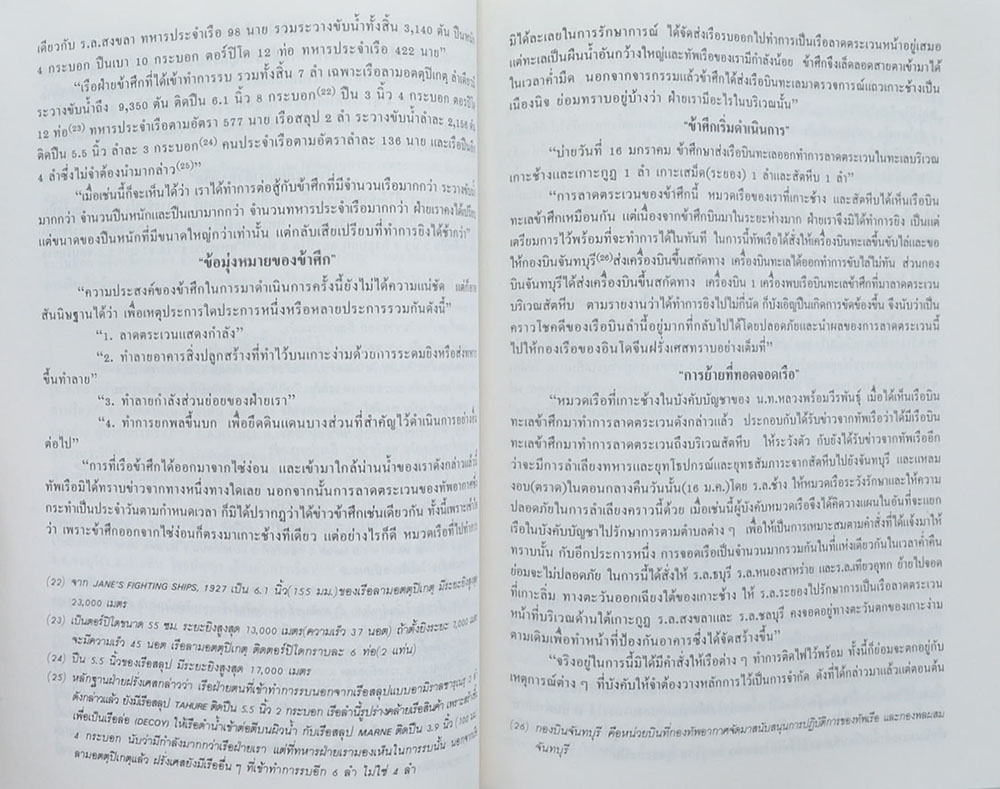 เดียวกับ ร.ล.สงขลา ทหารประจำเรือ 98 นาย รวมระวางขับน้ำทั้งสิ้น 3,140 ตัน ปืนหนัก
4 กระบอก ปืนเบา 10 กระบอก ตอร์ปิโด 12 ท่อ ทหารประจำเรือ 422 นาย”
“เรือฝ่ายข้าศึกที่ได้เข้าทำการรบ รวมทั้งสิ้น 7 ลำ เฉพาะเรือลามอตต์ปิเกต์ ลำเดียวมี
ระวางขับน้ำถึง 9,350 ตัน ติดปืน 6.1 นิ้ว 8 กระบอก(22) ปืน 3 นิ้ว 4 กระบอก ตอร์ปิโด
12 ท่อ(23) ทหารประจำเรือตามอัตรา 577 นาย เรือสลุป 2 ลำ ระวางขับน้ำลำละ 2,156 ตัน
ติดปืน 5.5 นิ้ว ลำละ 3 กระบอก(24) คนประจำเรือตามอัตราลำละ 136 นาย และเรือปืนอีก
4 ลำซึ่งไม่จำต้องนำมากล่าว(25)”
“เมื่อเช่นนี้ก็จะเห็นได้ว่า เราได้ทำการต่อสู้กับข้าศึกที่มีจำนวนเรือมากกว่า ระวางขับน้ำ
มากกว่า จำนวนปืนหนักและปืนเบามากกว่า จำนวนทหารประจำเรือมากกว่า ฝ่ายเราคงได้เปรียบ
แต่ขนาดของปืนหนักที่มีขนาดใหญ่กว่าเท่านั้น แต่กลับเสียเปรียบที่ทำการยิงได้ช้ากว่า”
“ข้อมุ่งหมายของข้าศึก”
“ความประสงค์ของข้าศึกในการมาดำเนินการครั้งนี้ยังไม่ได้ความแน่ชัด แต่ก็อาจ
สันนิษฐานได้ว่า เพื่อเหตุประการใดประการหนึ่งหรือหลายประการรวมกันดังนี้”
“1. ลาดตระเวนแสดงกำลัง”
“2. ทำลายอาคารสิ่งปลูกสร้างที่ทำไว้บนเกาะง่ามด้วยการระดมยิงหรือส่งทหาร
ขึ้นทำลาย”
“3. ทำลายกำลังส่วนย่อยของฝ่ายเรา”
“4. ทำการยกพลขึ้นบก เพื่อยึดดินแดนบางส่วนที่สำคัญไว้ดำเนินการอย่างอื่น
ต่อไป”
“การที่เรือข้าศึกได้ออกมาจากไซ่ง่อน และเข้ามาใกล้น่านน้ำของเราดังกล่าวแล้วนี้
ทัพเรือมิได้ทราบข่าวจากทางหนึ่งทางใดเลย นอกจากนั้นการลาดตระเวนของทัพอากาศซึ่ง
กระทำเป็นประจำวันตามกำหนดเวลา ก็มิได้ปรากฏว่าได้ข่าวข้าศึกเช่นเดียวกัน ทั้งนี้เพราะเข้าใจ
ว่า เพราะข้าศึกออกจากไซ่ง่อนก็ตรงมาเกาะช้างทีเดียว แต่อย่างไรก็ดี หมวดเรือที่ไปทำการ
(22) จาก JANE'S FIGHTING SHIPS, 1927 เป็น 6.1 นิ้ว(155 มม.)ของเรือลามอตต์ปิเกต์ มีระยะยิงสูงสุด
23,000 เมตร
(23) เป็นตอร์ปิโดขนาด 55 ซม. ระยะยิงสูงสุด 13,000 เมตร(ความเร็ว 37 นอต) ถ้าตั้งยิงระยะ 7,000 เมตร
จะมีความเร็ว 45 นอต เรือลามอตต์ปิเกต์ ติดตอร์ปิโดกราบละ 6 ท่อ(2 แท่น)
(24) ปืน 5.5 นิ้วของเรือสลุป มีระยะยิงสูงสุด 17,000 เมตร
(25) หลักฐานฝ่ายฝรั่งเศสกล่าวว่า เรือฝ่ายตนที่เข้าทำการรบนอกจากเรือสลุปแบบอามิราลชาร์เนร์ 2 ลำ
ดังกล่าวแล้ว ยังมีเรือสลุป TAHURE ติดปืน 5.5 นิ้ว 2 กระบอก เรือลำนี้รูปร่างคล้ายเรือสินค้า เพราะสร้างขึ้น
เพื่อเป็นเรือล่อ (DECOY) ให้เรือดำน้ำเข้าต่อตีบนผิวน้ำ กับเรือสลุป MARNE ติดปืน 3.9 นิ้ว (100 มม.)
4 กระบอก นับว่ามีกำลังมากกว่าเรือฝ่ายเรา แต่ที่ทหารฝ่ายเรามองเห็นในการรบนั้น นอกจากเรือ
ลามอตต์ปิเกต์แล้ว ฝรั่งเศสยังมีเรืออื่น ๆ ที่เข้าทำการรบอีก 6 ลำ ไม่ใช่ 4 ลำ
มิได้ละเลยในการรักษาการณ์ ได้จัดส่งเรือรบออกไปทำการเป็นเรือลาดตระเวนหน้าอยู่เสมอ
แต่ทะเลเป็นผืนน้ำอันกว้างใหญ่และทัพเรือของเรามีกำลังน้อย ข้าศึกจึงเล็ดลอดสายตาเข้ามาได้
ในเวลาค่ำมืด นอกจากจารกรรมแล้วข้าศึกได้ส่งเรือบินทะเลมาตรวจการณ์แถวเกาะช้างเป็น
เนืองนิจ ย่อมทราบอยู่บ้างว่า ฝ่ายเรามีอะไรในบริเวณนั้น”
“ข้าศึกเริ่มดำเนินการ”
“บ่ายวันที่ 16 มกราคม ข้าศึกมาส่งเรือบินทะเลออกทำการลาดตระเวนในทะเลบริเวณ
เกาะช้างและเกาะกูฏ 1 ลำ เกาะเสม็ด(ระยอง) 1 ลำและสัตหีบ 1 ลำ”
“การลาดตระเวนของข้าศึกนี้ หมวดเรือของเราที่เกาะช้าง และสัตหีบได้เห็นเรือบิน
ทะเลข้าศึกเหมือนกัน แต่เนื่องจากข้าศึกบินมาในระยะห่างมาก ฝ่ายเราจึงมิได้ทำการยิง เป็นแต่
เตรียมการไว้พร้อมที่จะทำการได้ในทันที ในการนี้ทัพเรือได้สั่งให้เครื่องบินทะเลขึ้นขับไล่และขอ
ให้กองบินจันทบุรี(26)ส่งเครื่องบินขึ้นสกัดทาง เครื่องบินทะเลได้ออกทำการขับไล่ไม่ทัน ส่วนกอง
บินจันทบุรีได้ส่งเครื่องบินขึ้นสกัดทาง เครื่องบิน 1 เครื่องพบเรือบินทะเลข้าศึกที่มาลาดตระเวน
บริเวณสัตหีบ ตามรายงานว่าได้ทำการยิงไปไม่กี่นัด ก็บังเอิญปืนเกิดการขัดข้องขึ้น จึงนับว่าเป็น
คราวโชคดีของเรือบินลำนี้อยู่มากที่กลับไปได้โดยปลอดภัยและนำผลของการลาดตระเวนนี้
ไปให้กองเรือของอินโดจีนฝรั่งเศสทราบอย่างเต็มที่”
“การย้ายที่ทอดจอดเรือ”
“หมวดเรือที่เกาะช้างในบังคับบัญชาของ น.ท.หลวงพร้อมวีรพันธุ์ เมื่อได้เห็นเรือบิน
ทะเลข้าศึกมาทำการลาดตระเวนดังกล่าวแล้ว ประกอบกับได้รับข่าวจากทัพเรือว่าได้มีเรือบิน
ทะเลข้าศึกมาทำการลาดตระเวนถึงบริเวณสัตหีบ ให้ระวังตัว กับยังได้รับข่าวจากทัพเรืออีก
ว่าจะมีการลำเลียงทหารและยุทโธปกรณ์และยุทธสัมภาระจากสัตหีบไปยังจันทบุรี และแหลม
งอบ(ตราด)ในตอนกลางคืนวันนั้น(16 ม.ค.)โดย ร.ล.ช้าง ให้หมวดเรือระวังรักษาและให้ความ
ปลอดภัยในการลำเลียงคราวนี้ด้วย เมื่อเช่นนี้ผู้บังคับหมวดเรือจึงได้คิดวางแผนในอันที่จะแยก
เรือในบังคับบัญชาไปรักษาการตามตำบลต่าง ๆ เพื่อให้เป็นการเหมาะสมตามคำสั่งที่ได้แจ้งมาให้
ทราบนั้น กับอีกประการหนึ่ง การจอดเรือเป็นจำนวนมากรวมกันในที่แห่งเดียวกันในเวลาค่ำคืน
ย่อมจะไม่ปลอดภัย ในการนี้ได้สั่งให้ ร.ล.ธนบุรี ร.ล.หนองสาหร่าย และร.ล.เทียวอุทก ย้ายไปจอด
ที่เกาะลิ่ม ทางตะวันออกเฉียงใต้ของเกาะช้าง ให้ ร.ล.ระยองไปรักษาการเป็นเรือลาดตระเวน
หน้าที่บริเวณด้านใต้เกาะกูฏ ร.ล.สงขลาและ ร.ล.ชลบุรี คงจอดอยู่ทางตะวันตกของเกาะง่าม
ตามเดิมเพื่อทำหน้าที่ป้องกันอาคารซึ่งได้จัดสร้างขึ้น”
“จริงอยู่ในการนี้มิได้มีคำสั่งให้เรือต่าง ๆ ทำการติดไฟไว้พร้อม ทั้งนี้ก็ย่อมจะตกอยู่กับ
เหตุการณ์ต่าง ๆ ที่บังคับให้จำต้องวางหลักการไว้เป็นการจำกัด ดังที่ได้กล่าวมาแล้วแต่ตอนต้น
(26) กองบินจันทบุรี คือหน่วยบินที่กองทัพอากาศจัดมาสนับสนุนการปฏิบัติการของทัพเรือ และกองพลผสม
จันทบุรี